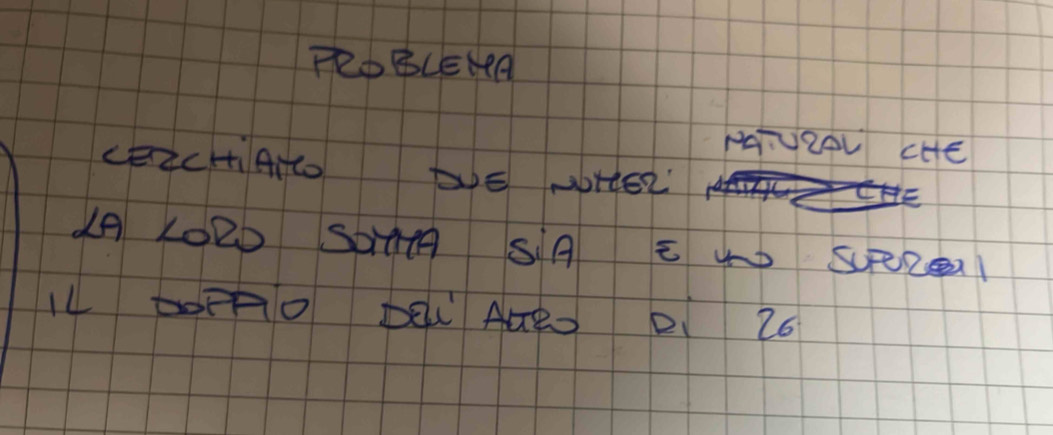 PROBLEMA
CERCHIAMO DUE NUMERI NATURALI CHE
LA LORO SOMMA SIA E UNO SUPERI
IL DOPPIO DELL'ALTRO DI 26